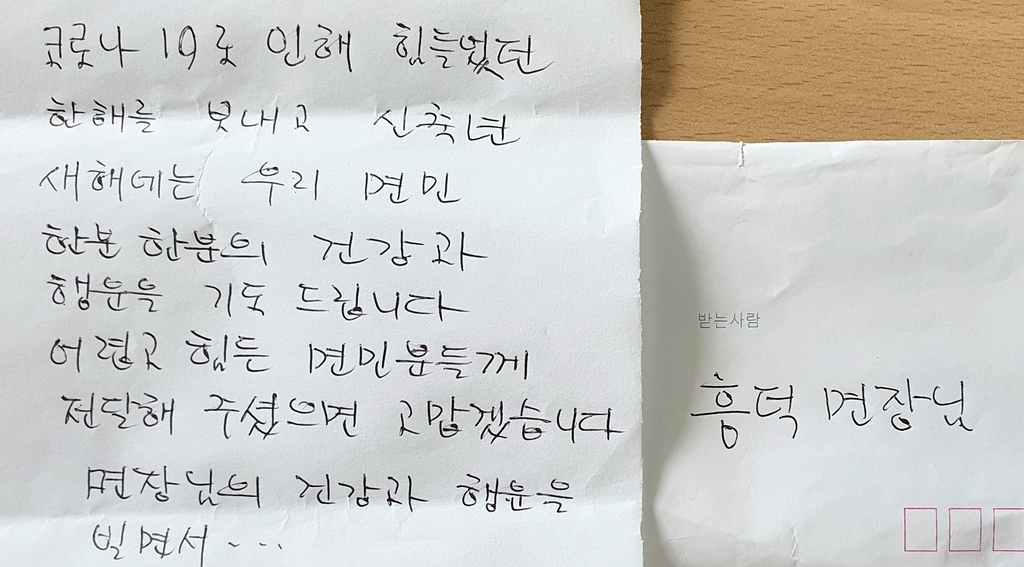 코로나 19로 인해 힘들었던
한해를 보내고 신축년
새해에는 우리 면민
한분 한분의 건강과
행운을 기도 드립니다
어렵고 힘든 면민분들께
전달해 주셨으면 고맙겠습니다
면장님의 건강과 행운을
빌면서 - ...
받는사람
흥덕 면장님